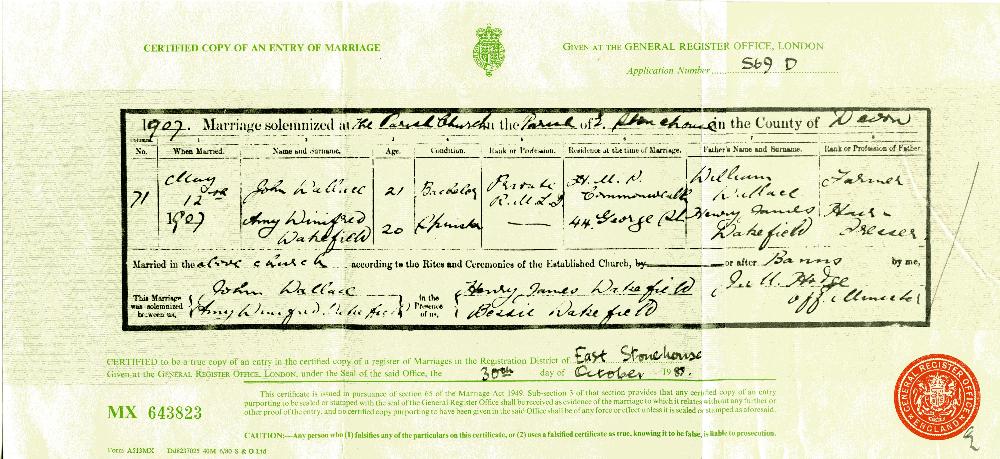 CERTIFIED COPY OF AN ENTRY OF MARRIAGE
GIVEN AT THE GENERAL REGISTER OFFICE, LONDON
Application Number 569 D
1907. Marriage solemnized at the Parish Church in the Parish of E. Stonehouse in the County of Devon
No. When Married. Name and Surname. Age. Condition. Rank or Profession. Residence at the time of Marriage. Father's Name and Surname. Rank or Profession of Father.
71 May 12th 1907 John Wallace 21 Bachelor Private R.M.L.I. H.M.S. Commonwealth William Wallace Farmer
Amy Winifred Wakefield 20 Spinster — 44 George St. Henry James Wakefield Hair-Dresser
Married in the above church according to the Rites and Ceremonies of the Established Church, by or after Banns by me,
This Marriage was solemnized between us, John Wallace Amy Winifred Wakefield in the Presence of us, Henry James Wakefield Bessie Wakefield Off. Minister
CERTIFIED to be a true copy of an entry in the certified copy of a register of Marriages in the Registration District of East Stonehouse
Given at the GENERAL REGISTER OFFICE, LONDON, under the Seal of the said Office, the 30th day of October 19
This certificate is issued in pursuance of section 65 of the Marriage Act 1949. Sub-section 3 of that section provides that any certified copy of an entry
purporting to be sealed or stamped with the seal of the General Register Office shall be received as evidence of the marriage to which it relates without any further or
other proof of the entry, and no certified copy purporting to have been given in the said Office shall be of any force or effect unless it is sealed or stamped as aforesaid.
MX 643823
CAUTION:—Any person who (1) falsifies any of the particulars on this certificate, or (2) uses a falsified certificate as true, knowing it to be false, is liable to prosecution.
Form A513MX Dd8237025 40M 6/80 S & O Ltd
GENERAL REGISTER OFFICE
ENGLAND